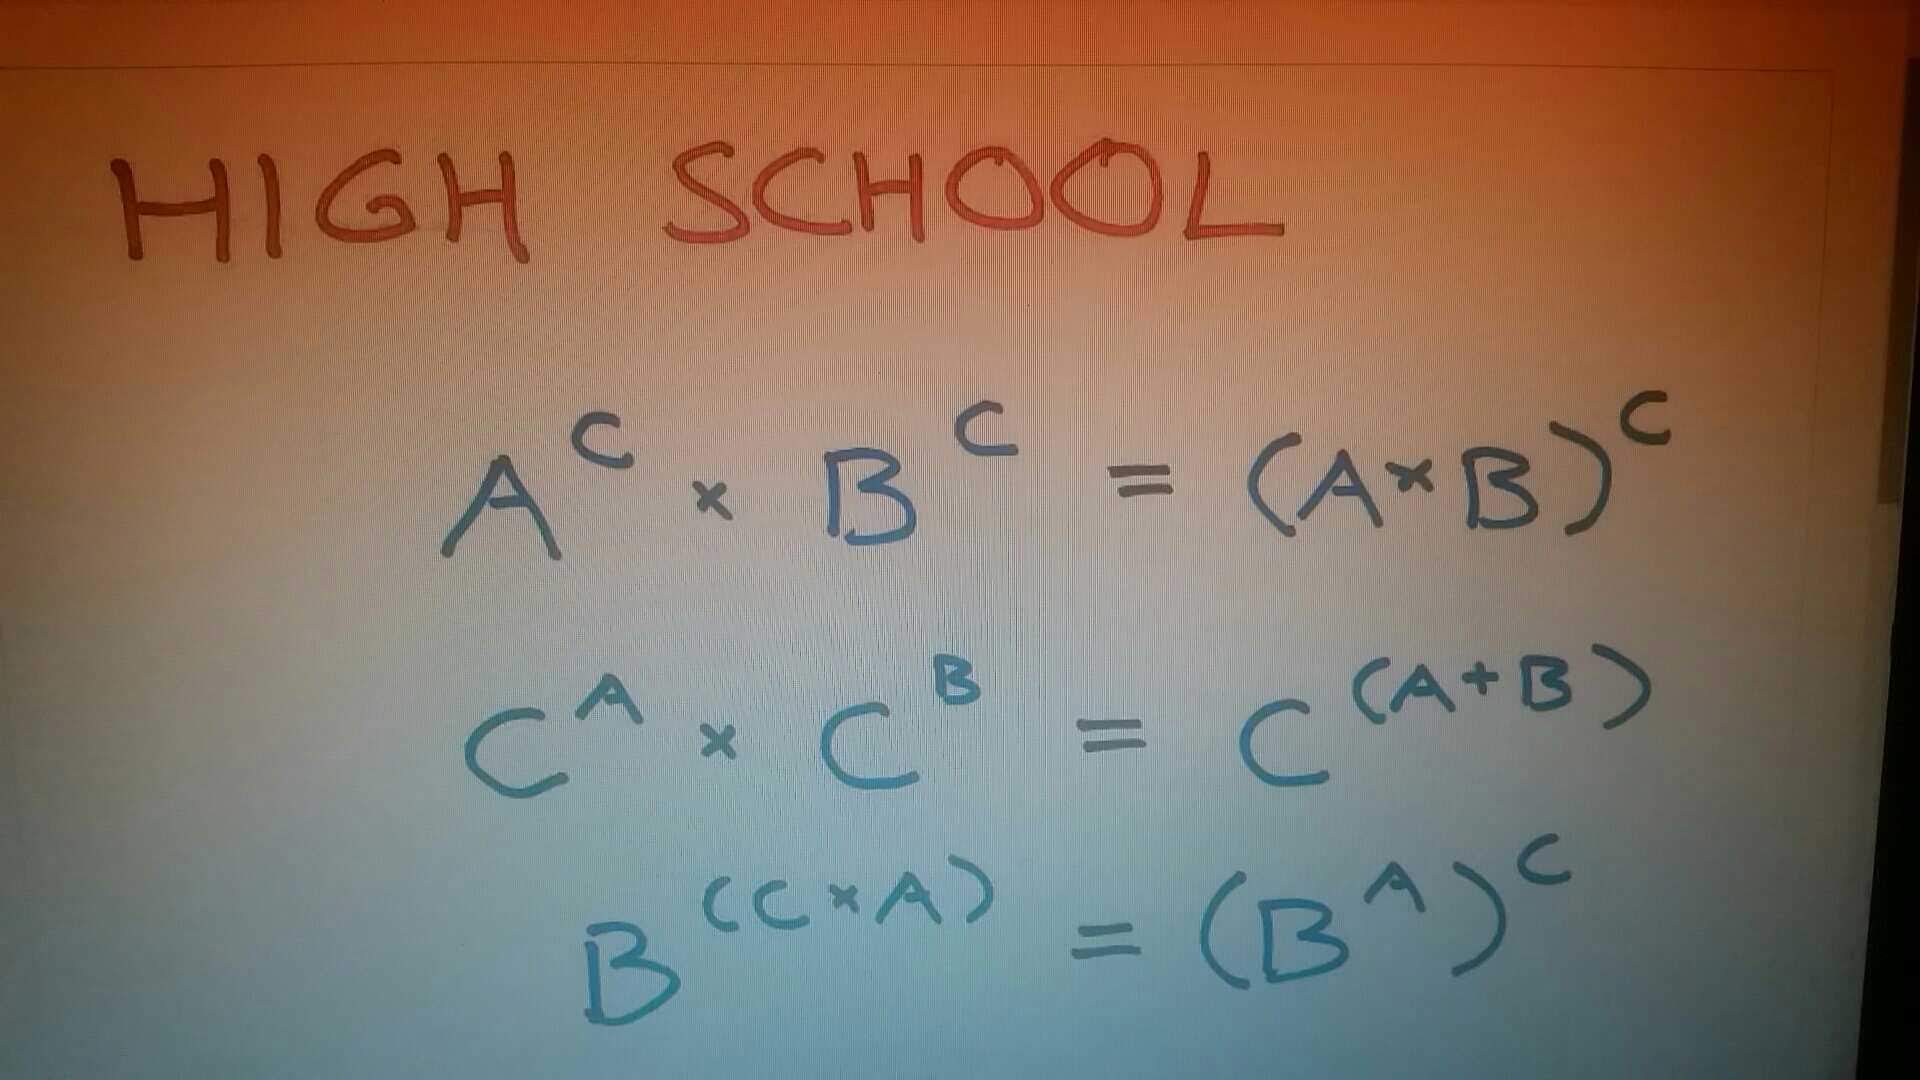 HIGH SCHOOL
A^C × B^C = (A×B)^C
C^A × C^B = C^(A+B)
B^(C×A) = (B^A)^C